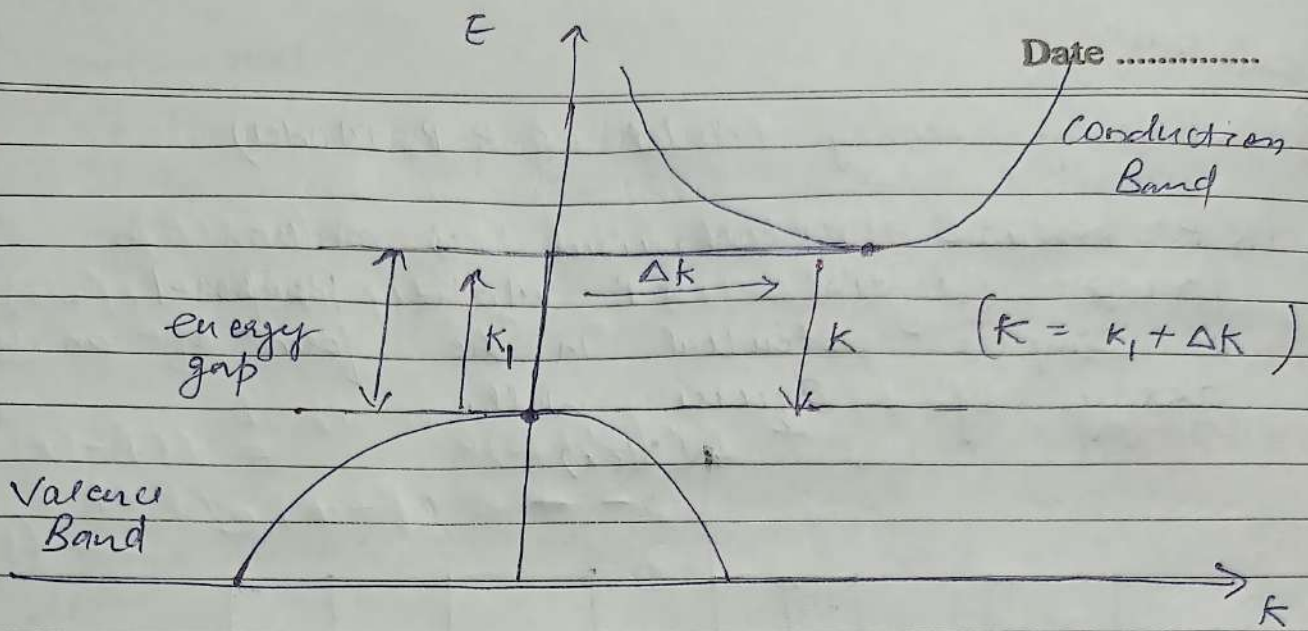 E
Date ..............
Conduction
Band
Δk
energy
gap
K₁
K
(K = K₁ + Δk)
Valence
Band
K